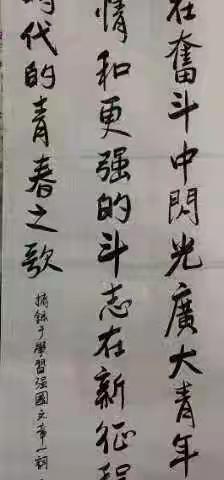 在奮斗中閃光廣大青年
情和更强的斗志在新征程
時代的青春之歌
摘錄于學習强國文章一詞